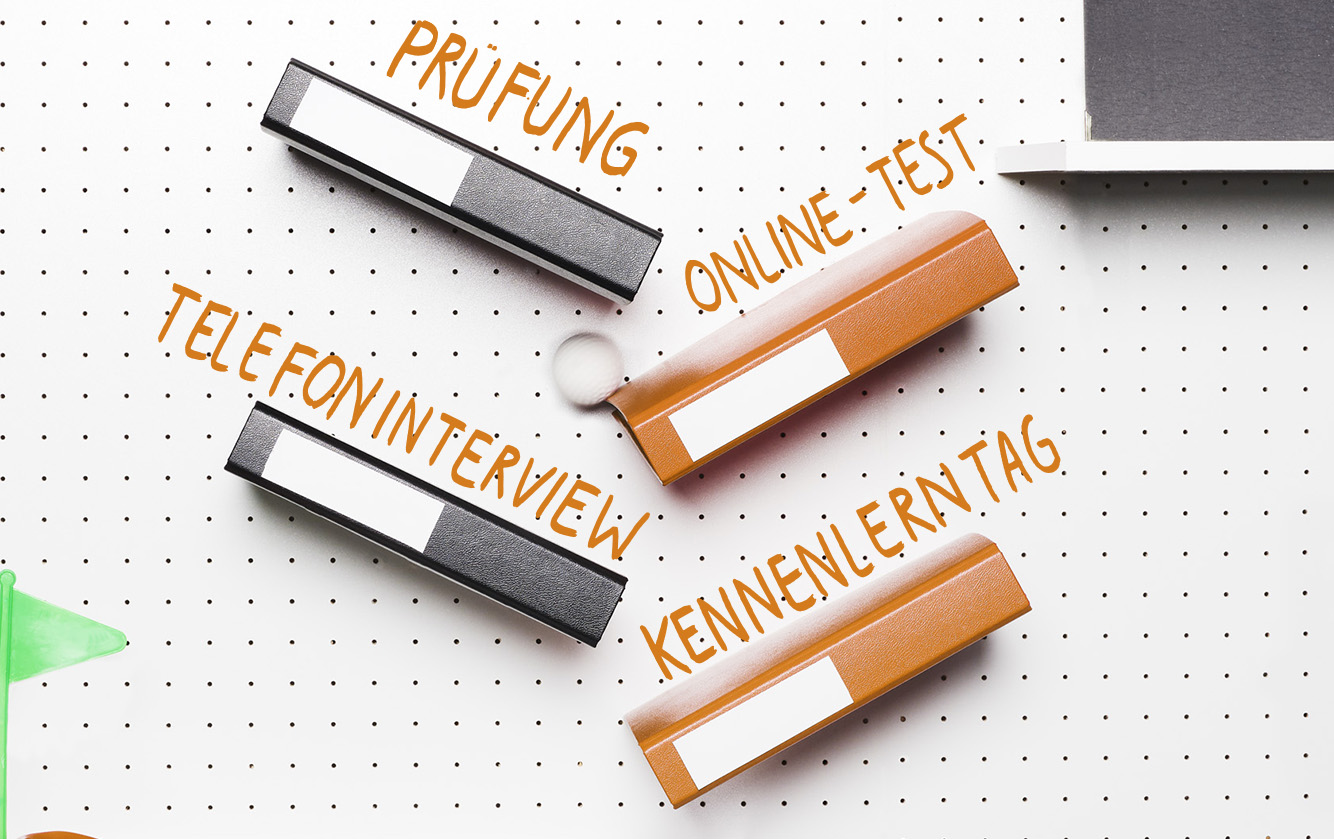 PRÜFUNG
ONLINE-TEST
TELEFONINTERVIEW
KENNENLERNTAG